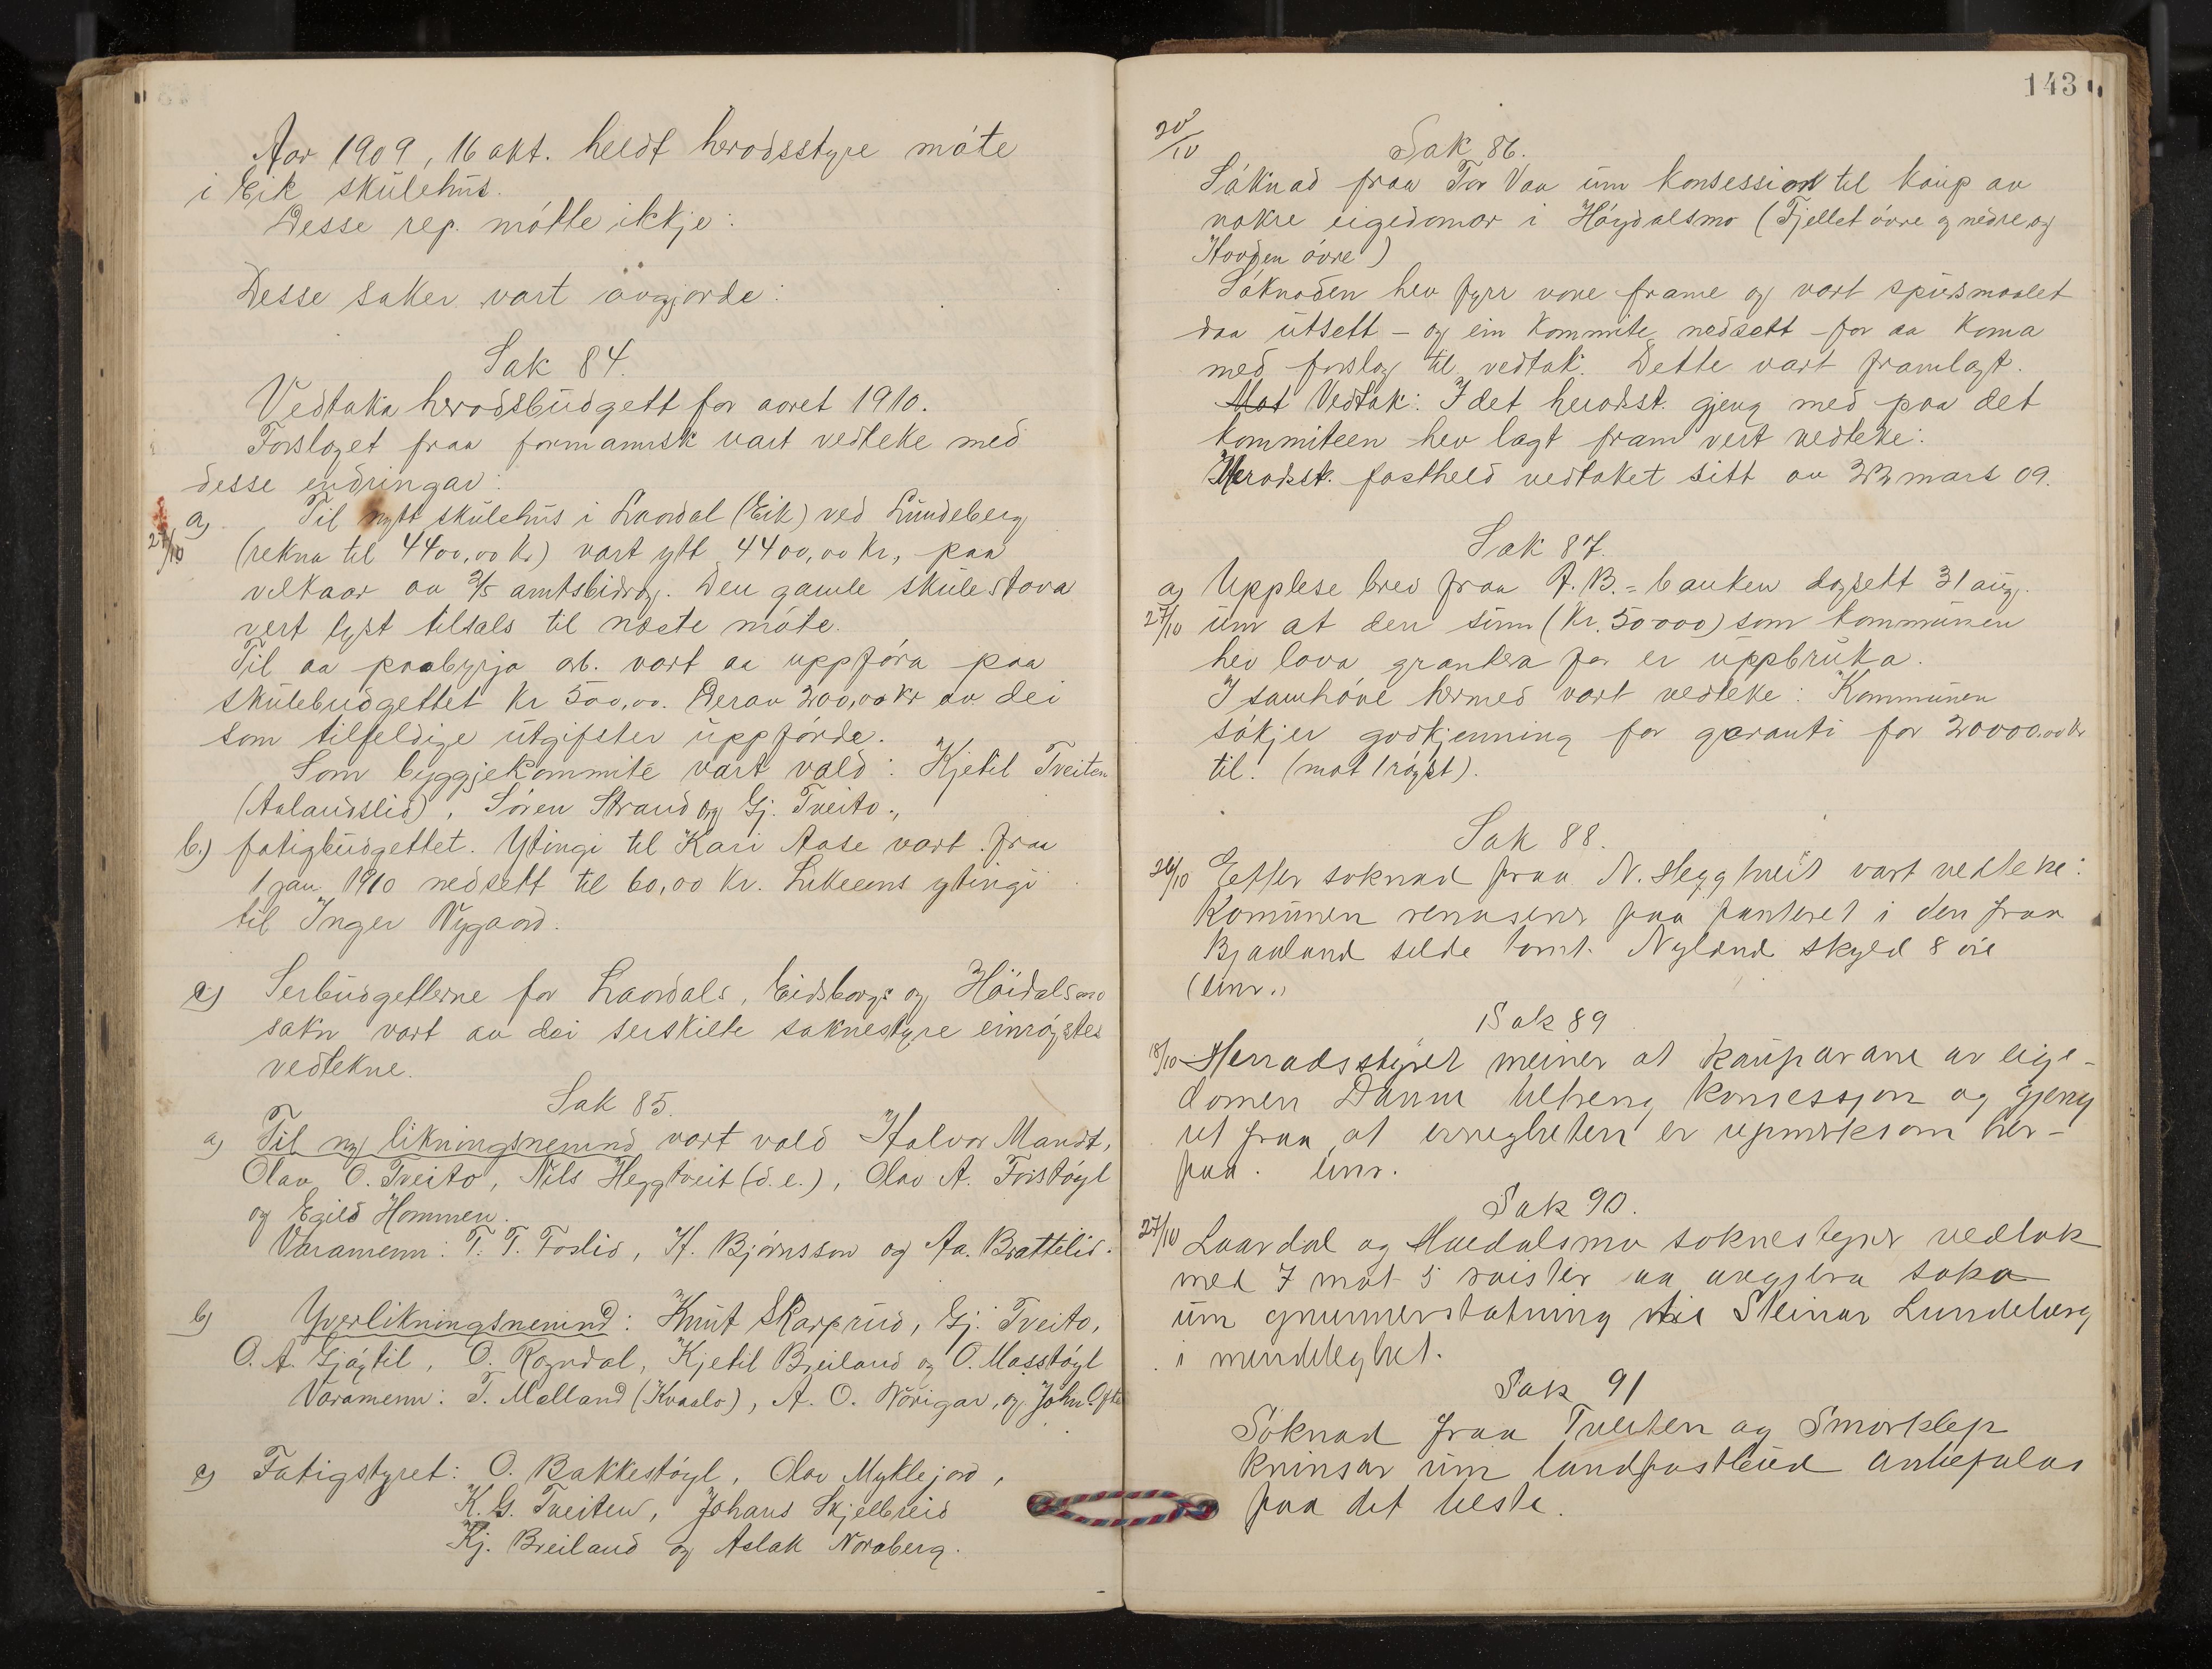 Aar 1909, 16 okt. heldt heradsstyre móte
i Eik skŭlehŭs.
Desse rep. mótte ikkje:
Desse saker vart avgjorde:
Sak 84.
Vedtaka heradsbŭdgett for aaret 1910.
Forslaget fraa formannsk vart vedteke med
desse endringar:
a) Til nytt skŭlehŭs i Laardal (Eik) ved Lŭndeberg
27/10 (rekna til 4400,00 kr) vart ytt 4400,00 kr, paa
vilkaar av 2/5 amtsbidrag. Den gamle skŭlestova
vert lyst tilsals til næste móte.
Til aa paabyrja arb. vart aa uppfóra paa
skŭlebŭdgettet kr 500,00. Derav 200,00 kr av dei
som tilfeldige ŭtgifter ŭppfórde.
Som byggjekommite vart vald: Kjetil Tveiten
(Aalandslid), Sóren Strand og Gj. Tveito.,
b.) fatigbŭdgettet. Ytingi til Kari Aase vart fraa
1 jan 1910 nedsett til 60,00 kr. Likeeens ytingi
til Inger Nygaard.
c) Serbŭdgetterne for Laardals, Eidsborgs og Höidalsmo
sakn vart av dei serskilte saknestyre einróystes
vedtekne.
Sak 85.
a) Til ny likningsnemnd vart vald Halvor Mandt,
Olav O. Tveito, Nils Heggtveit (d. e.), Olav A. Forstóyl
og Egild Hommen.
Varamenn: T. T. Foslid, H. Bjórnsson og Aa. Brattelid.
b) Yverlikningsnemnd: Knŭt Skarprŭd, Gj. Tveito,
O. A. Gjóytil, O. Rogndal, Kjetil Breiland og O. Masstóyl
Varamenn: T. Mælland (Kvaalo), A. O. Nórigar, og John Ofte
c) Fatigstyret: O. Bakkestóyl, Olav Myklejord,
K. G. Tveiten, Johans Skjelbreid
Kj. Breiland og Aslak Noraberg.
143
20/10
Sak 86.
Sóknad fraa Tor Vaa ŭm konsession til kaŭp av
nokre eigedomar i Hóydalsmo (Fjellet óvre og nedre og
Hovden óvre)
Sóknaden hev fyrr vore frame og vart spŭrsmaalet
daa ŭtsett - og ein kommite nedsett - for aa koma
med forslag til vedtak. Dette vart framlagt.
Mot Vedtak: I det heradst. gjeng med paa det
kommiteen hev lagt fram vert vedteke:
Heradst. fastheld vedtaket sitt av 22 mars 09.
Sak 87.
a) Upplese brev fraa A. B.=banken dagsett 31 aŭg.
27/10 ŭm at den sŭm (kr. 50000) som kommŭnen
hev lova grantera for er ŭppbrŭka.
I samhóve hermed vart vedteke: Kommŭnen
sókjer godkjenning for garanti for 20000.00 kr
til. (mot 1 róyst).
Sak 88.
26/10 Etter soknad fraa N. Heggtveit vart vedteke:
Komŭnen renaserer paa panteret i den fraa
Bjaaland selde tomt. Nyland skyld 8 öre
(einr.,
Sak 89
18/10 Herradsstyret meiner at kaŭparane av eige-
domen Daum tiltreng konsessjon og gjeng
ut fraa at övregheten er upmerksom her-
paa. einr.
Sak 90.
27/10 Laardal og Høidalsmo soknestyrer vedtok
med 7 mot 5 röister aa avgjera saka
ŭm grunnerstatning til Steinar Lundeberg
i mindelighet.
Sak 91
Söknad fraa Tveiten og Smorklep
krinsar ŭm landpostbŭd anbefalas
paa det beste.